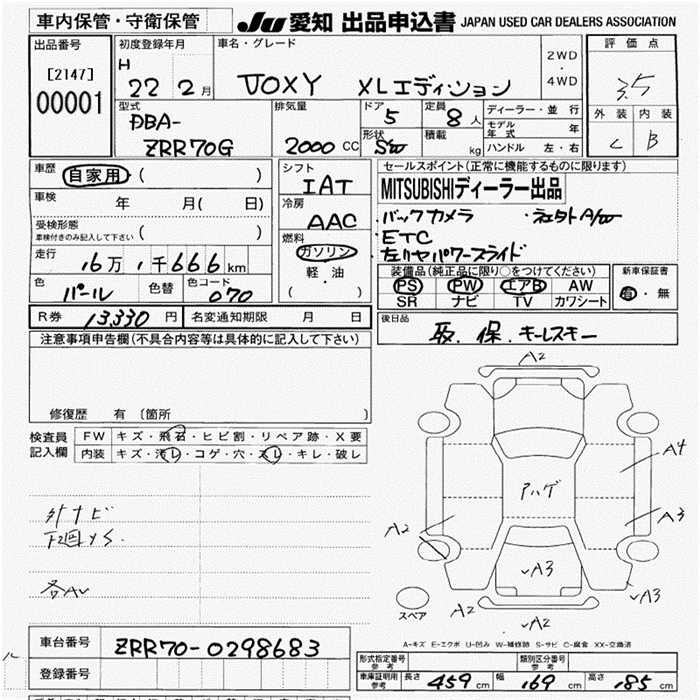 車内保管・守衛保管
JU 愛知 出品申込書 JAPAN USED CAR DEALERS ASSOCIATION
出品番号
[2147]
00001
初度登録年月
H 22 2月
車名・グレード
VOXY XLエディション
2WD
・
4WD
評価点
3.5
外装 内装
C B
型式
DBA-
ZRR70G
排気量
2000 CC
ドア
5
形状
定員
8人
積載
kg
ディーラー・並行
モデル年式 年
ハンドル 左・右
車歴 自家用 ( )
車検 年 月( 日)
受検形態
車検付きのみ記入して下さい ( )
走行 16万1千666km
色 パール 色替 色コード 070
シフト
IAT
冷房
AAC
燃料
ガソリン
軽・油
( )
セールスポイント(正常に機能するものに限ります)
MITSUBISHIディーラー出品
・バックカメラ
・ETC
・左リヤパワースライド
装備品(純正品に限り○をつけてください)
PS PW エアB AW
SR ナビ TV カワシート
新車保証書
有・無
R券 13,330円 名変通知期限 月 日
後日品
取.保.キーレスキー
注意事項申告欄(不具合内容等は具体的に記入して下さい)
修復歴 有 〔箇所 〕
検査員
記入欄
FW キズ・飛石・ヒビ割・リペア跡・X要
内装 キズ・汚レ・コゲ・穴・スレ・キレ・破レ
外ナビ
下廻りS.
各AU
A2
A4
アハゲ
A3
A2
✓A3
✓A3
A2
✓A2
スペア
A-キズ E-エクボ U-凹み W-補修跡 S-サビ C-腐食 XX-交換済
車台番号 ZRR70-0298683
登録番号
形式指定番号
参考
類別区分番号
参考
車庫証明用
参考
長さ 459cm 幅 169cm 高さ 185cm